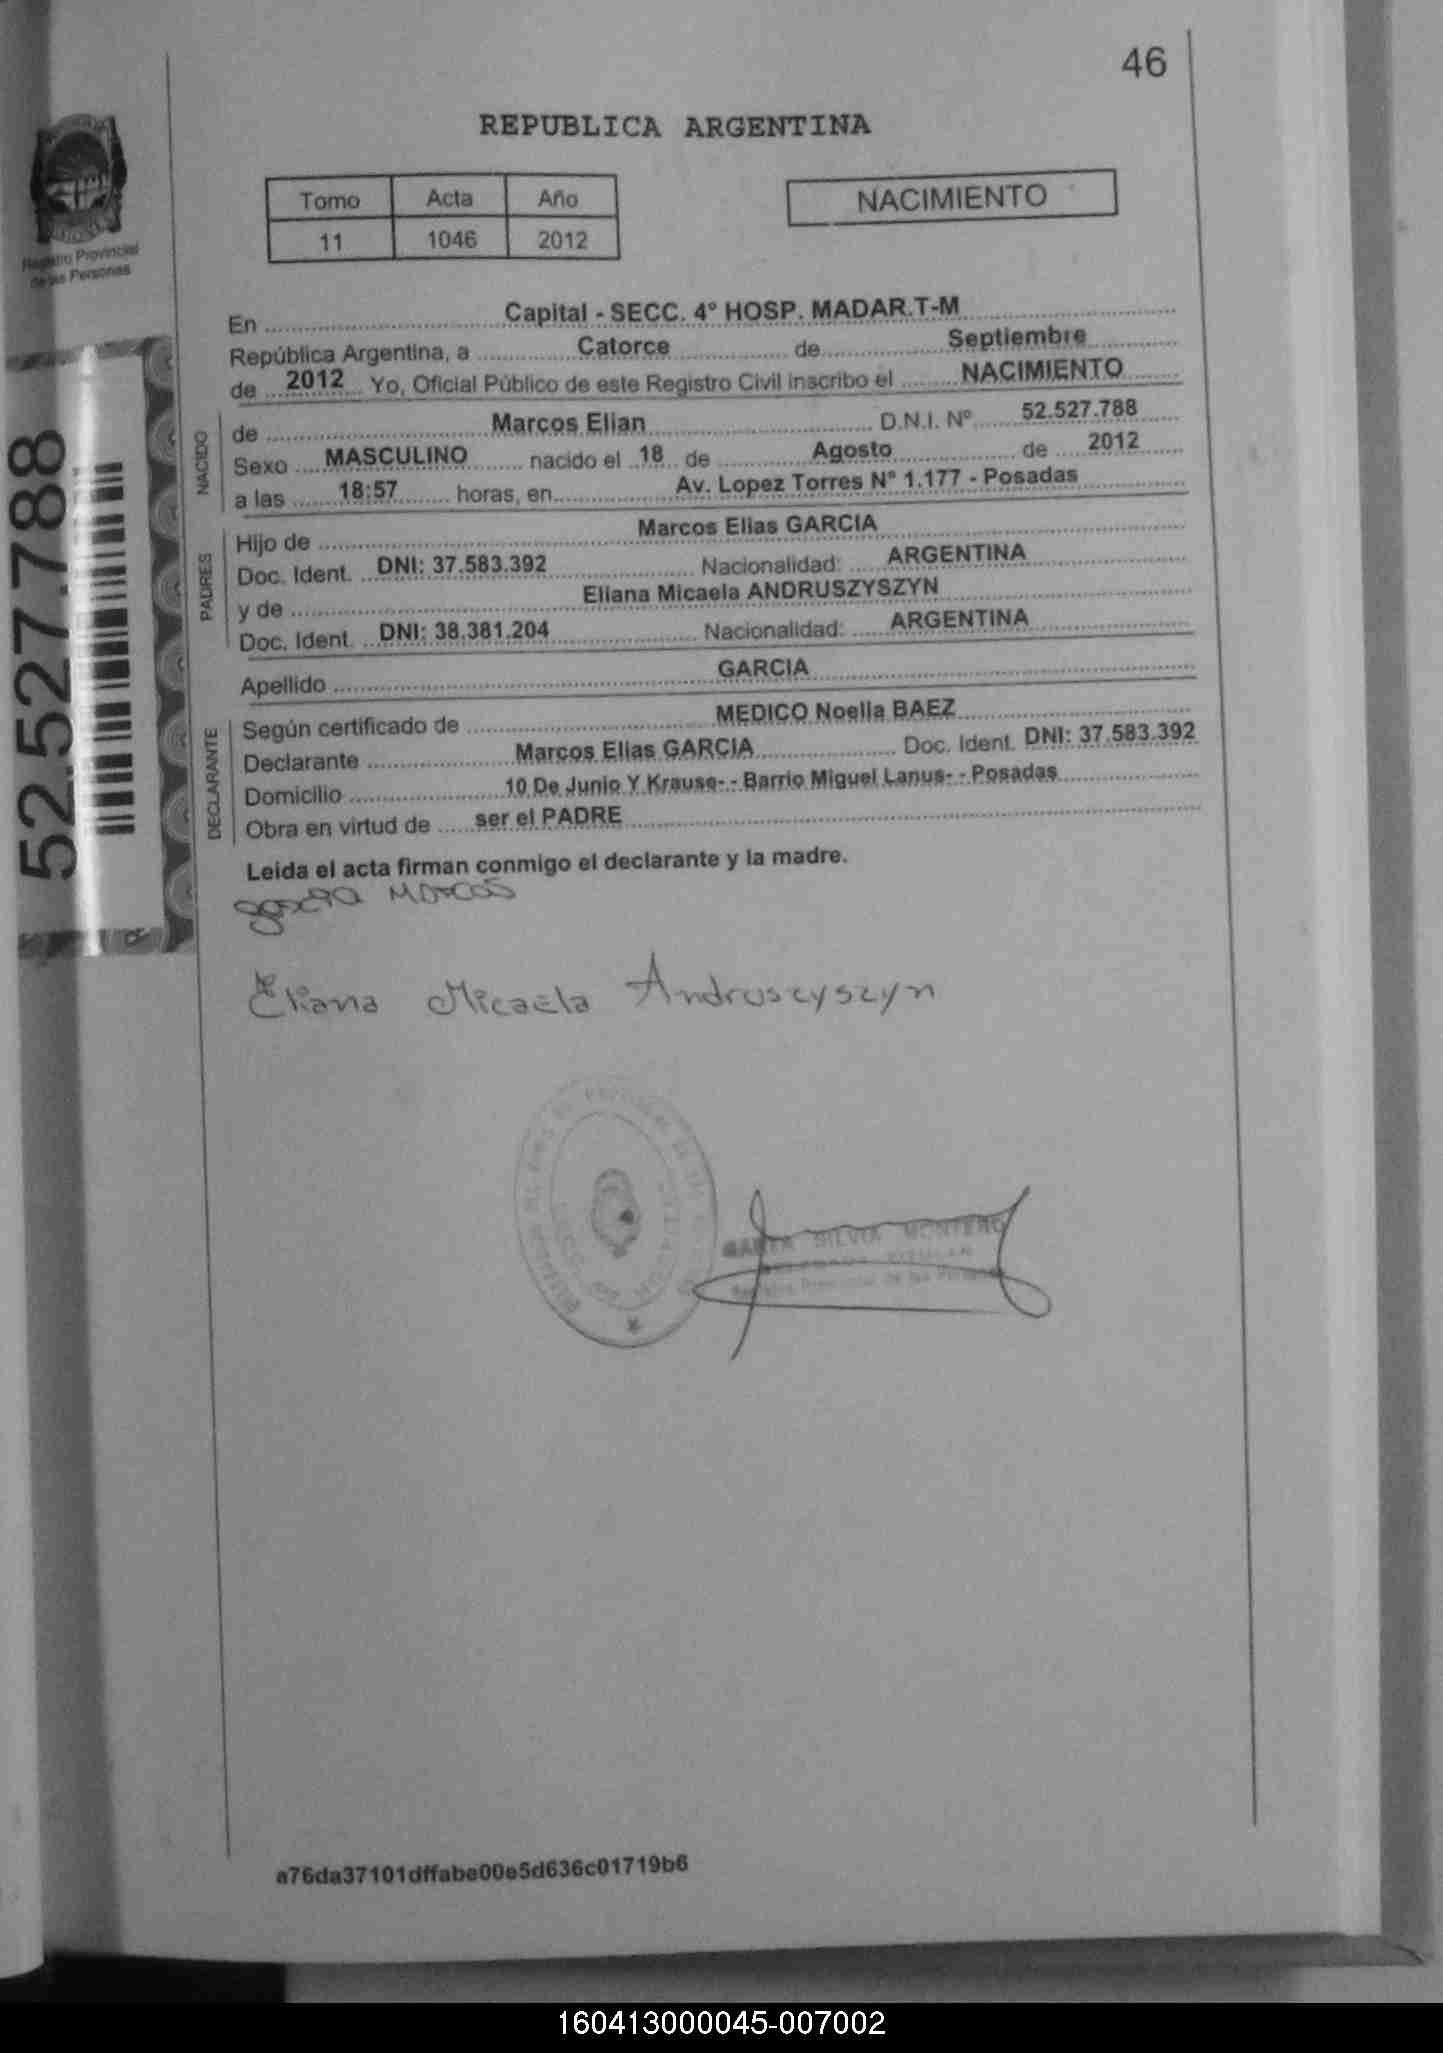 46
REPUBLICA ARGENTINA
Tomo Acta Año
11 1046 2012
NACIMIENTO
Registro Provincial
de las Personas
52.527.788
En Capital - SECC. 4° HOSP. MADAR.T-M
República Argentina, a Catorce de Septiembre
de 2012 Yo, Oficial Público de este Registro Civil inscribo el NACIMIENTO
NACIDO
de Marcos Elian D.N.I. Nº 52.527.788
Sexo MASCULINO nacido el 18 de Agosto de 2012
a las 18:57 horas, en Av. Lopez Torres N° 1.177 - Posadas
PADRES
Hijo de Marcos Elias GARCIA
Doc. Ident. DNI: 37.583.392 Nacionalidad: ARGENTINA
y de Eliana Micaela ANDRUSZYSZYN
Doc. Ident. DNI: 38.381.204 Nacionalidad: ARGENTINA
Apellido GARCIA
DECLARANTE
Según certificado de MEDICO Noelia BAEZ
Declarante Marcos Elias GARCIA Doc. Ident. DNI: 37.583.392
Domicilio 10 De Junio Y Krause- - Barrio Miguel Lanus- - Posadas
Obra en virtud de ser el PADRE
Leida el acta firman conmigo el declarante y la madre.
garcia Marcos
Eliana Micaela Andruszyszyn
SILVIA MONTERO
Registro Provincial de las Personas
a76da37101dffabe00e5d636c01719b6
160413000045-007002